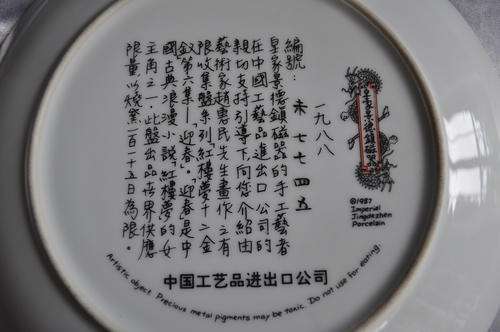 皇家景德鎮磁器
©1987
Imperial
Jingdezhen
Porcelain
一九八八
編號：未七七四五
皇家景德鎮磁器的手工藝者
在中國工藝品進出口公司的
親切支持引導下，向您介紹由
藝術家趙惠民先生畫作之有
限收集盤系列「紅樓夢十二金
釵」第六集——迎春。迎春是中
國古典浪漫小說「紅樓夢」的女
主角之一。此盤出品在世界供應
限量以燒窯一百一十五日為限。
中国工艺品进出口公司
Artistic object. Precious metal pigments may be toxic. Do not use for eating.